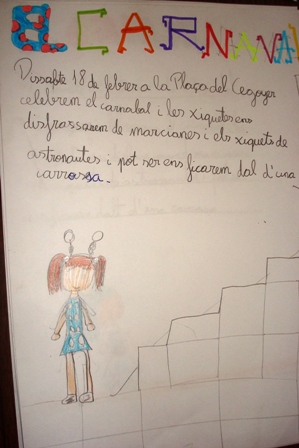 EL CARNAVAL
Dissabte 18 de febrer a la Plaça del
celebrem el carnabal i les xiquetes ens
disfrassarem de marcianes i els xiquets de
astronautes i pot ser ens ficarem dal d'una
carrossa.